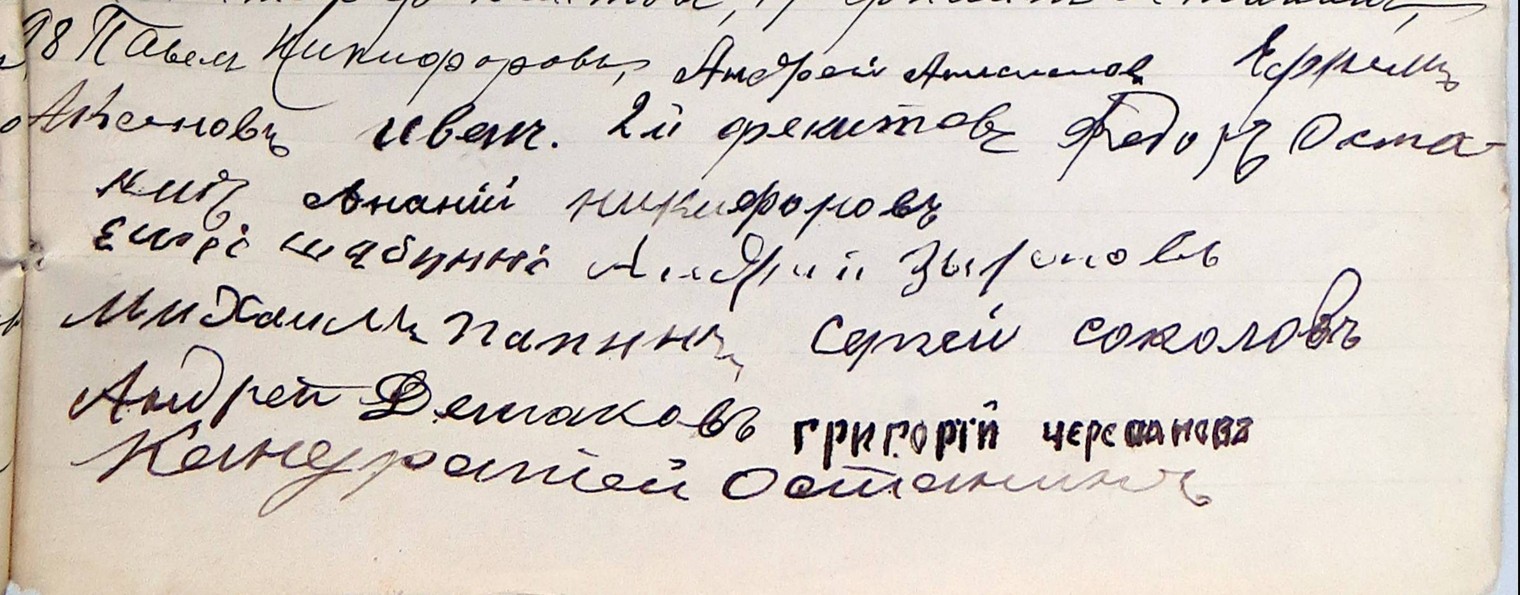 98 Павелъ Никифоровъ, Андрей Ефремъ
Аксеновъ иванъ. 2й фекитовъ Федоръ Оста-
нинъ Ананiй никифоровъ
Андрей Зыряновъ
Михаилъ папинъ, Сергей соколовъ
Андрей Детаковъ григорiй черепановъ
Кандратей Останинъ